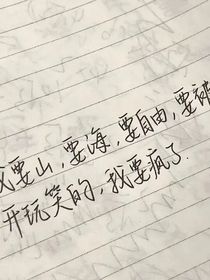 我要山，要海，要自由，要被
开玩笑的，我要疯了.